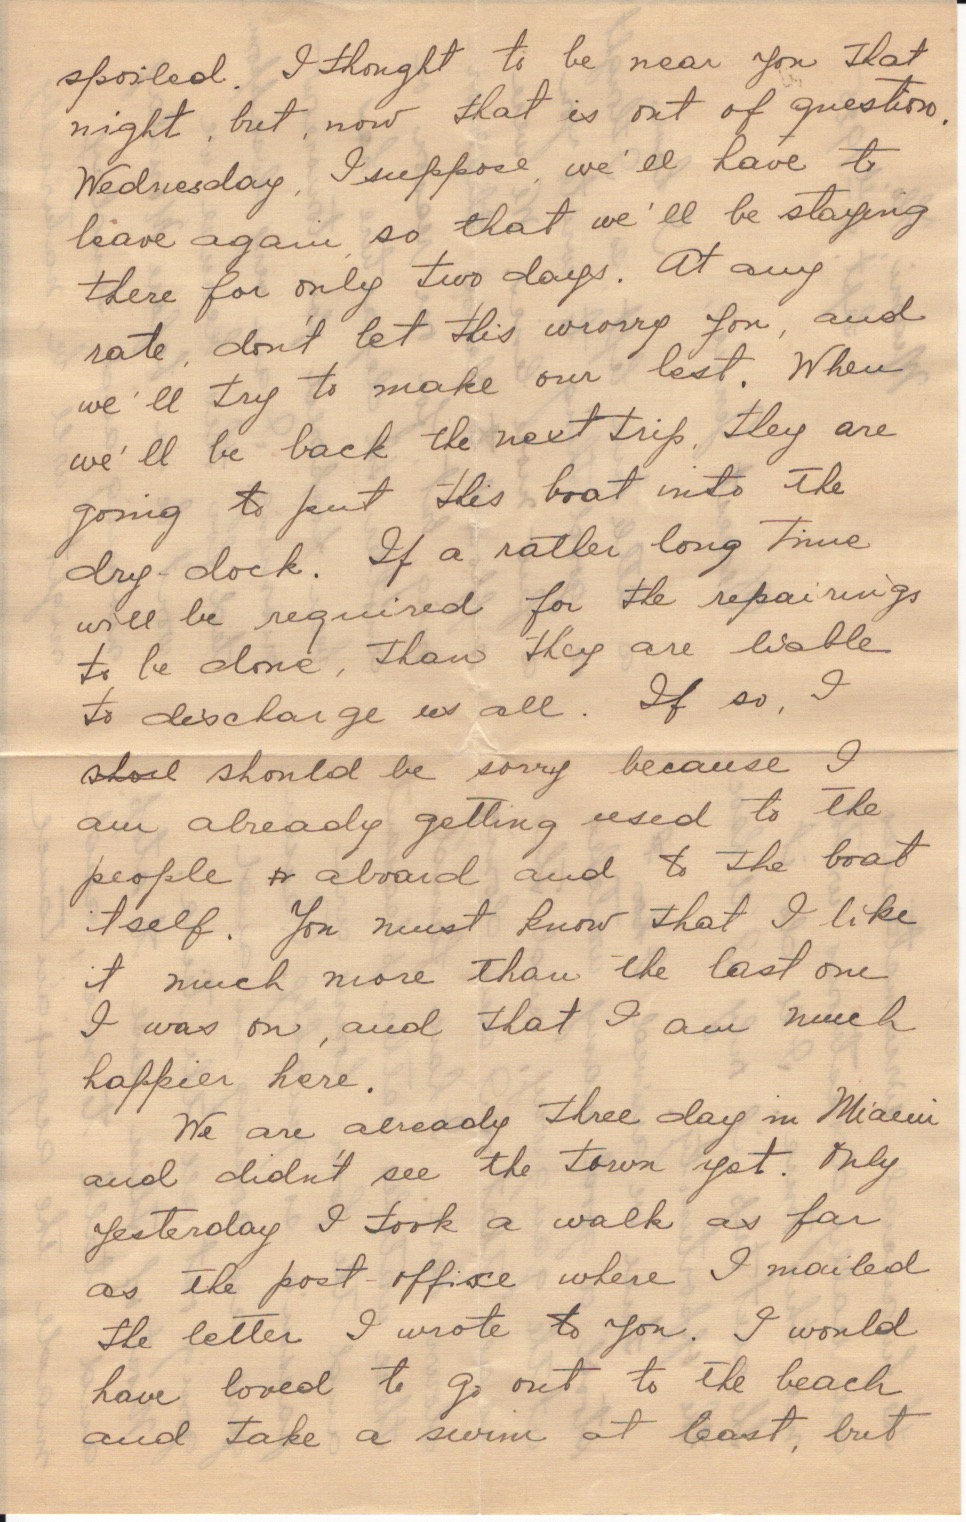 spoiled. I thought to be near you that
night, but, now that is out of question.
Wednesday, I suppose, we'll have to
leave again, so that we'll be staying
there for only two days. At any
rate, don't let this worry you, and
we'll try to make our best. When
we'll be back the next trip, they are
going to put this boat into the
dry-dock. If a rather long time
will be required for the repairings
to be done, than they are liable
to discharge us all. If so, I
should be sorry because I
am already getting used to the
people aboard and to the boat
itself. You must know that I like
it much more than the last one
I was on, and that I am much
happier here.
We are already three day in Miami
and didn't see the town yet. Only
yesterday I took a walk as far
as the post-office where I mailed
the letter I wrote to you. I would
have loved to go out to the beach
and take a swim at least, but